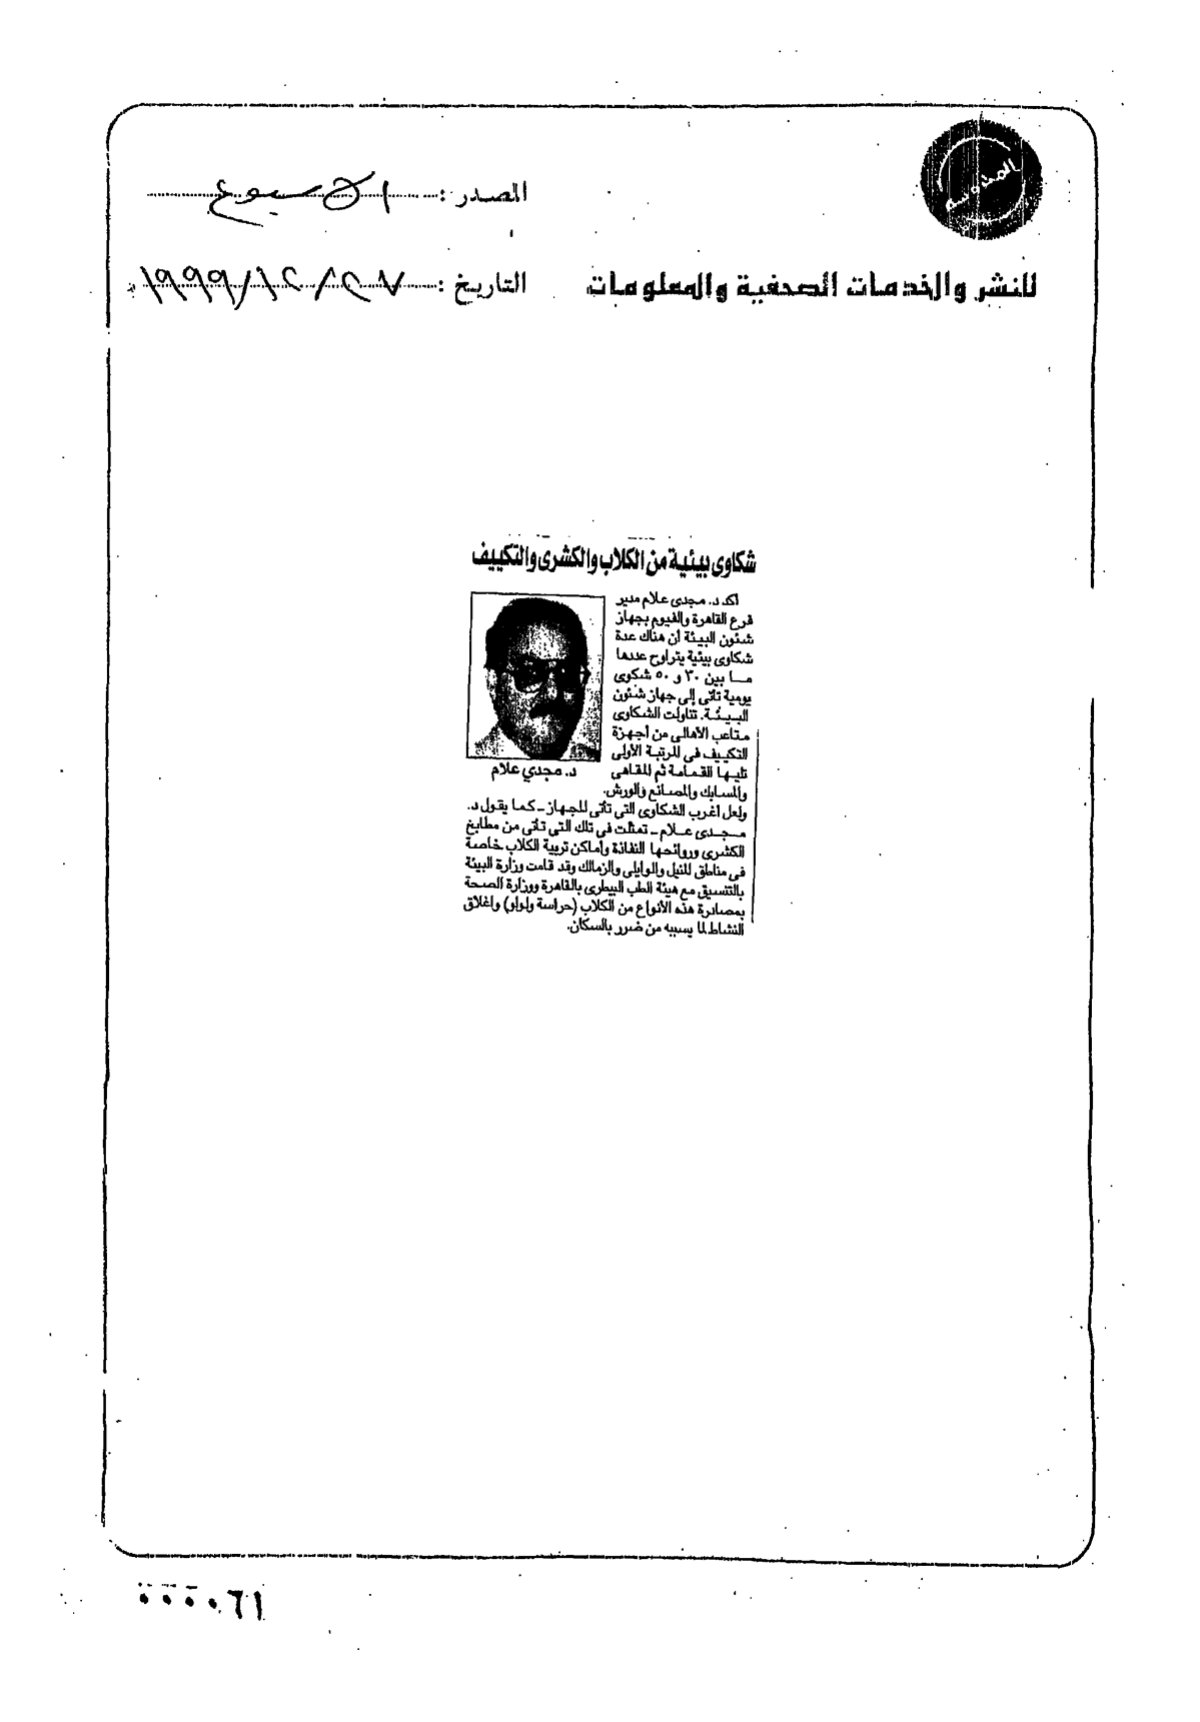 المصدر : الاسبوع
للنشر والخدمات الصحفية والمعلومات
التاريخ : ٢٧/١٢/١٩٩٩
شكاوى بيئية من الكلاب والكشرى والتكييف
أكد د. مجدى علام مدير
فرع القاهرة والفيوم بجهاز
شئون البيئة أن هناك عدة
شكاوى بيئية يتراوح عددها
مـا بين ٣٠ و ٥٠ شكوى
يومية تأتى إلى جهاز شئون
البيـئـة. تناولت الشكاوى
متاعب الأهالى من أجهزة
التكييف فى المرتبة الأولى
تليها القمامة ثم المقاهى
والمسابك والمصانع والورش.
د. مجدي علام
ولعل أغرب الشكاوى التى تأتى للجهاز ـ كما يقول د.
مـجـدى عـلام ـ تمثلت فى تلك التى تأتى من مطابخ
الكشرى وروائحها النفاذة وأماكن تربية الكلاب خاصة
فى مناطق المنيل والوايلى والزمالك وقد قامت وزارة البيئة
بالتنسيق مع هيئة الطب البيطرى بالقاهرة ووزارة الصحة
بمصادرة هذه الأنواع من الكلاب (حراسة ولولو) وإغلاق
النشاط لما يسببه من ضرر بالسكان.